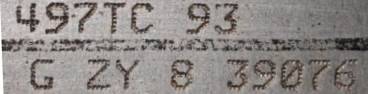 497TC 93
G ZY 8 39076